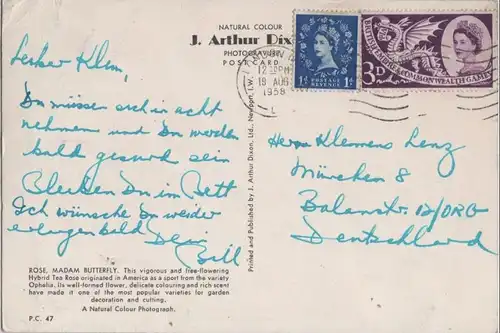 NATURAL COLOUR
J. Arthur Dix
PHOTOGRAVURE
POST CARD
12 PM
18 AUG
1958
L
POSTAGE REVENUE
1d 1d
3D
BRITISH EMPIRE & COMMONWEALTH GAMES
Lieber Klem,
Du müssen sich in acht
nehmen und Du werden
bald gesund sein
Bleiben Du im Bett
Ich wünsche Du wieder
bald Dein
Bill
Printed and Published by J. Arthur Dixon, Ltd., Newport, I.W.
Herrn Klemens Lenz
München 8
Balanstr. 12/
Deutschland
ROSE, MADAM BUTTERFLY. This vigorous and free-flowering
Hybrid Tea Rose originated in America as a sport from the variety
Ophelia. Its well-formed flower, delicate colouring and rich scent
have made it one of the most popular varieties for garden
decoration and cutting.
A Natural Colour Photograph.
P.C. 47